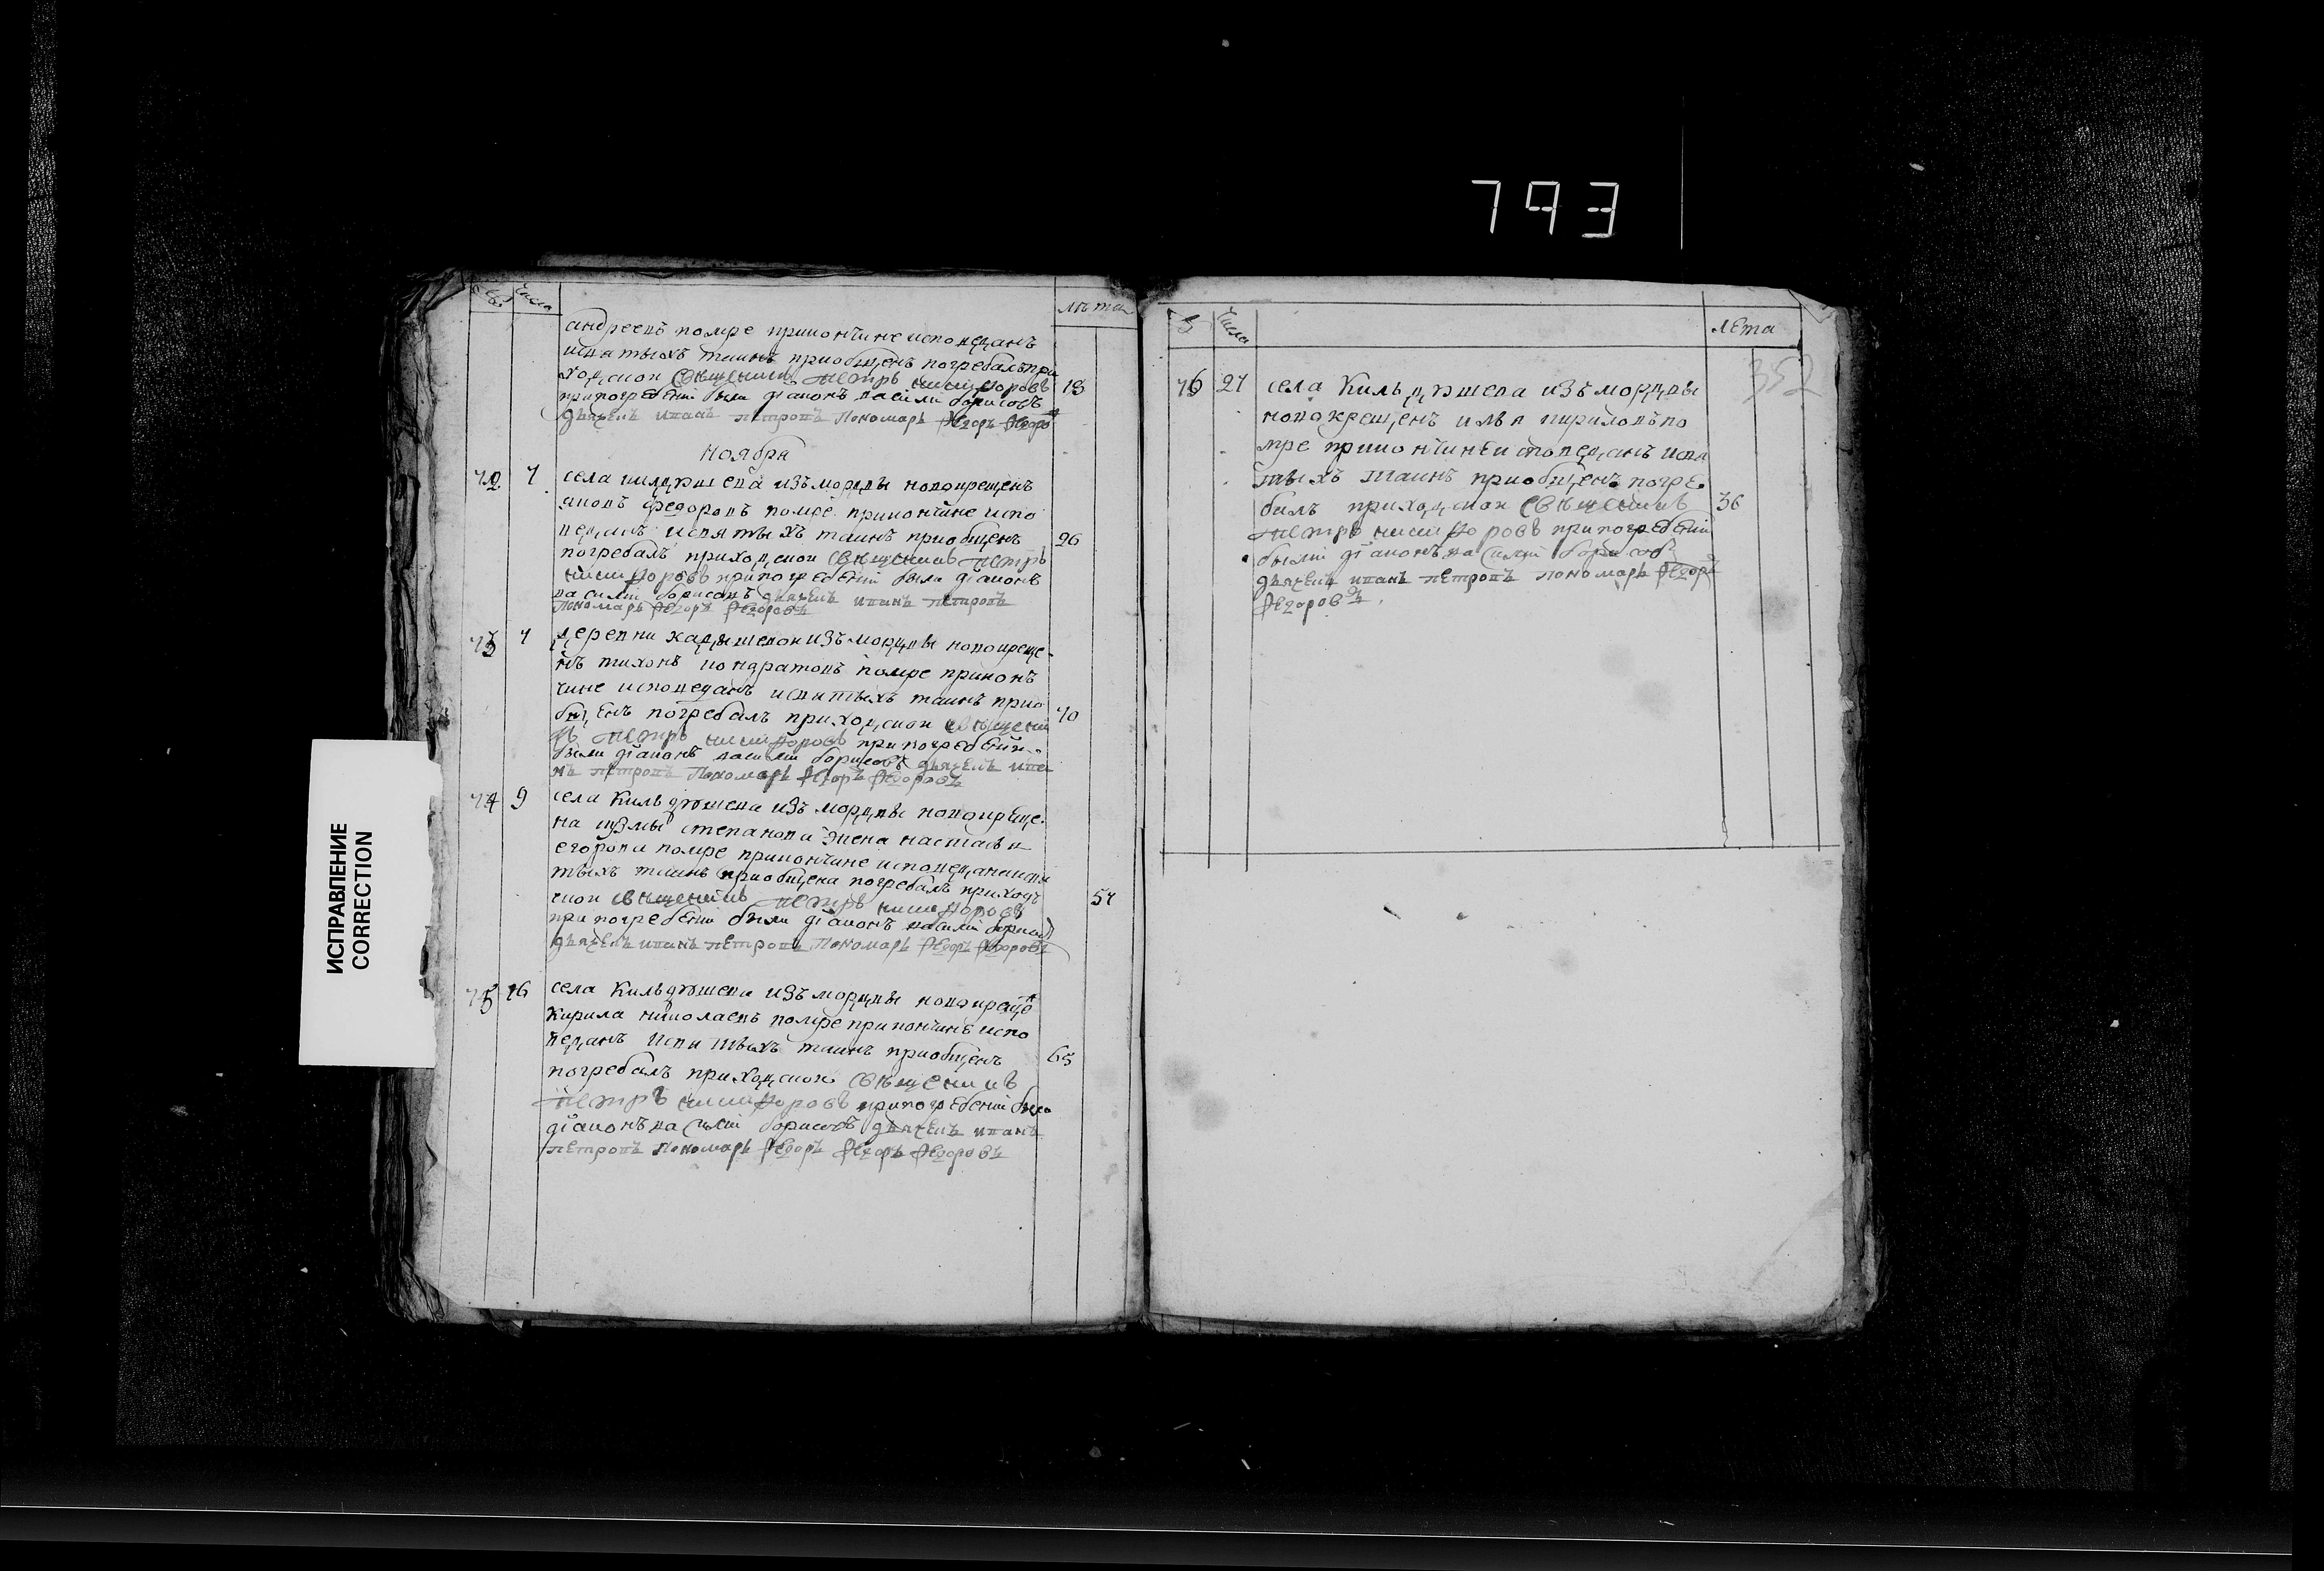 793
ИСПРАВЛЕНИЕ
CORRECTION
числа
лѣта
андреевъ помре прикончине исповеданъ
исвятыхъ таинъ приобщенъ погребалъ при
ходской священникъ Петръ Никифоровъ 13
припогребенiи были дiаконъ васили борисовъ
дьячекъ иванъ петровъ Пономарь Федоръ Федоровъ
Ноября
72 7 села килдюшева изъ мордвы новокрещенъ
яковъ федоровъ помре прикончине испо
веданъ исвятыхъ таинъ приобщенъ 26
погребалъ приходской священникъ Петръ
Никифоровъ припогребенiи были дiаконъ
василiй борисовъ дьячекъ иванъ петровъ
Пономарь Федоръ Федоровъ
73 7 деревни кадышевои изъ мордвы новокреще
нъ тихонъ кондратовъ помре прикон
чине исповеданъ исвятыхъ таинъ прио
бщенъ погребалъ приходской священни 70
къ Петръ Никифоровъ припогребенiи
были дiаконъ васили борисовъ дьячекъ ива
нъ петровъ Пономарь Федоръ Федоровъ
74 9 села Кильдюшева изъ мордвы новокреще
на кузмы степанова жена настасья
егорова помре прикончине исповедана исвя
тыхъ таинъ приобщена погребалъ приход
ской священникъ Петръ Никифоровъ 57
припогребенiи были дiаконъ василiй борисовъ
дьячекъ иванъ петровъ Пономарь Федоръ Федоровъ
75 16 села Кильдюшева изъ мордвы новокреще
Кирила николаевъ помре прикончинѣ испо
веданъ исвятыхъ таинъ приобщенъ 65
погребалъ приходской священникъ
Петръ Никифоровъ припогребенiи были
дiаконъ василiй борисовъ дьячекъ иванъ
петровъ Пономарь Федоръ Федоръ Федоровъ
числа
лѣта
352
76 27 села Кильдюшева изъ мордвы
новокрещенъ илья кириловъ по
мре прикончинѣ исповеданъ исвя
тыхъ таинъ приобщенъ погре
балъ приходской священникъ 36
Петръ Никифоровъ припогребенiи
были дiаконъ василiй борисовъ
дьячекъ иванъ петровъ пономарь Федоръ
Федоровъ